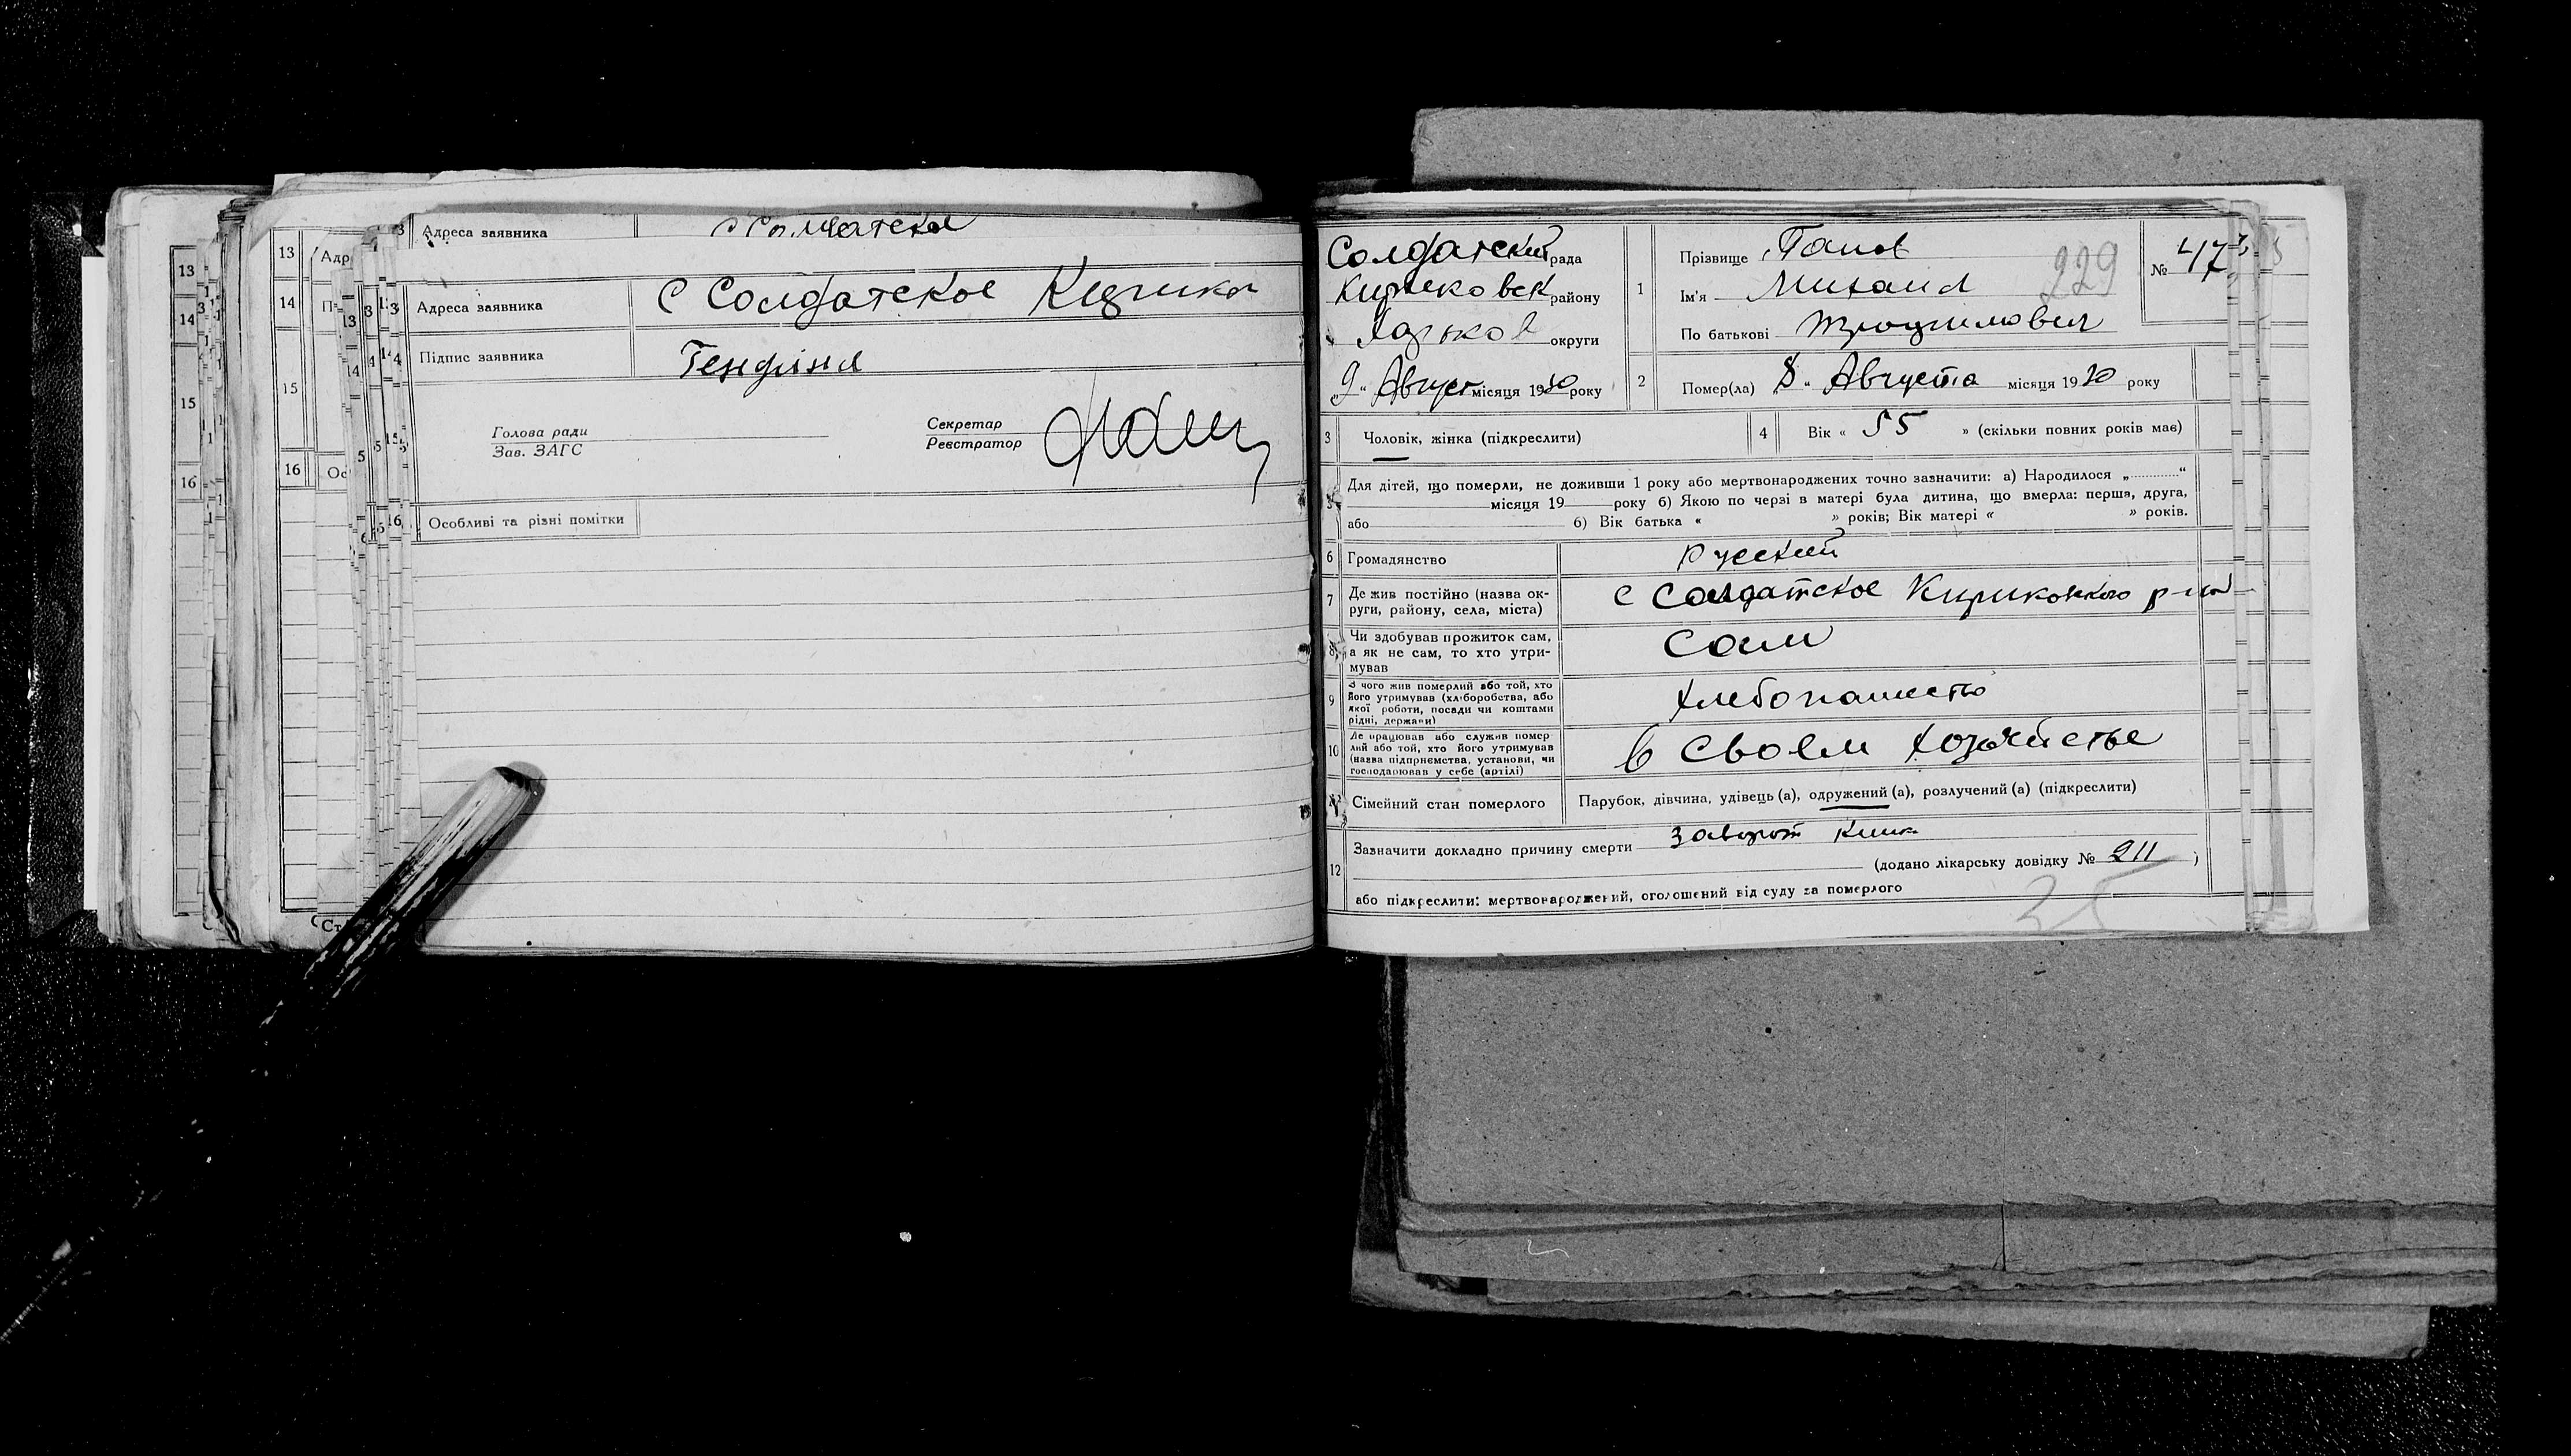 13
14
15
16
13
14
15
16
Адр
Ос
Адреса заявника с Солдатское
Адреса заявника с Солдатское Кирика
Підпис заявника
Голова ради
Зав. ЗАГС
Секретар
Реєстратор
Особливі та різні помітки
Солдатский рада
Кириковск району
Харьков округи
„9“ Август місяця 1930 року
1 Прізвище Панов
Ім'я Михаил
По батькові Трофимович
229
№ 47
2 Помер(ла) „8“ Августа місяця 1930 року
3 Чоловік, жінка (підкреслити)
4 Вік « 55 » (скільки повних років має)
5 Для дітей, що померли, не доживши 1 року або мертвонароджених точно зазначити: а) Народилося „............“
місяця 19 року б) Якою по черзі в матері була дитина, що вмерла: перша, друга,
або б) Вік батька « » років; Вік матері « » років.
6 Громадянство русский
7 Де жив постійно (назва ок-
руги, району, села, міста) с Солдатское Кириковского р-на
8 Чи здобував прожиток сам,
а як не сам, то хто утри-
мував сам
9 З чого жив померлий або той, хто
його утримував (хліборобства, або
якої роботи, посади чи коштами
рідні, держави) хлебопашество
10 Де працював або служив помер
лий або той, хто його утримував
(назва підприємства, установи, чи
господарював у себе (артілі) в своем хозяйстве
Сімейний стан померлого Парубок, дівчина, удівець (а), одружений (а), розлучений (а) (підкреслити)
12 Зазначити докладно причину смерти заворот кишок
(додано лікарську довідку № 211 )
або підкреслити: мертвонароджений, оголошений від суду за померлого